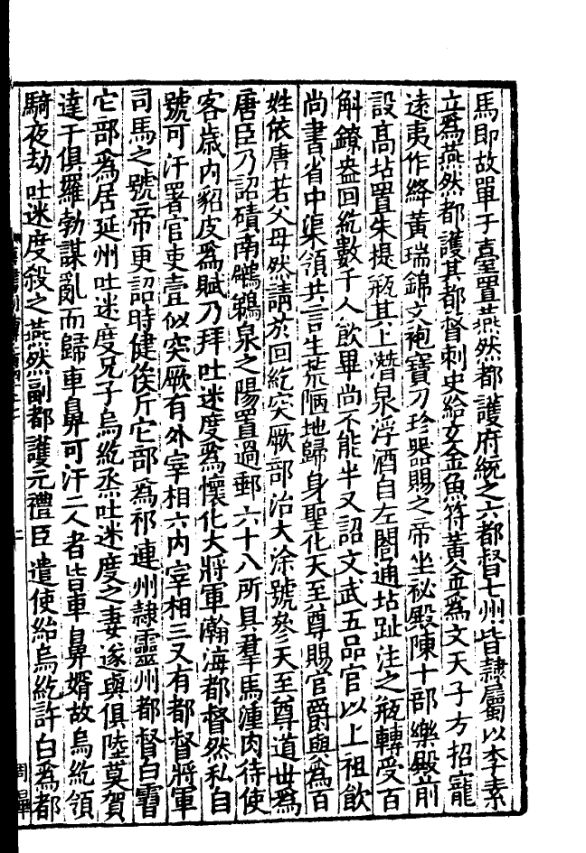 馬即故單于臺置燕然都護府統之六都督七州皆隷屬以李素
立爲燕然都護其都督刺史給玄金魚符黃金爲文天子方招寵
遠夷作絳黃瑞錦文袍寶刀珍器賜之帝坐祕殿陳十部樂殿前
設高坫置朱提瓶其上潛泉浮酒自左閤通坫趾注之瓶轉受百
斛鐐盎回紇數千人飲畢尚不能半又詔文武五品官以上祖飲
尚書省中渠領共言生荒陋地歸身聖化天至尊賜官爵與爲百
姓依唐若父母然請於回紇突厥部治大涂號參天至尊道丗爲
唐臣乃詔磧南鸊鵜泉之陽置過郵六十八所具羣馬湩肉待使
客歲内貂皮爲賦乃拜吐迷度爲懷化大將軍瀚海都督然私自
號可汗署官吏壹似突厥有外宰相六内宰相三又有都督將軍
司馬之號帝更詔時健俟斤它部爲祁連州隷靈州都督白霫
它部爲居延州吐迷度兄子烏紇烝吐迷度之妻遂與俱陸莫賀
達干俱羅勃謀亂而歸車鼻可汗二人者皆車鼻婿故烏紇領
騎夜劫吐迷度殺之燕然副都護元禮臣遣使紿烏紇許白爲都